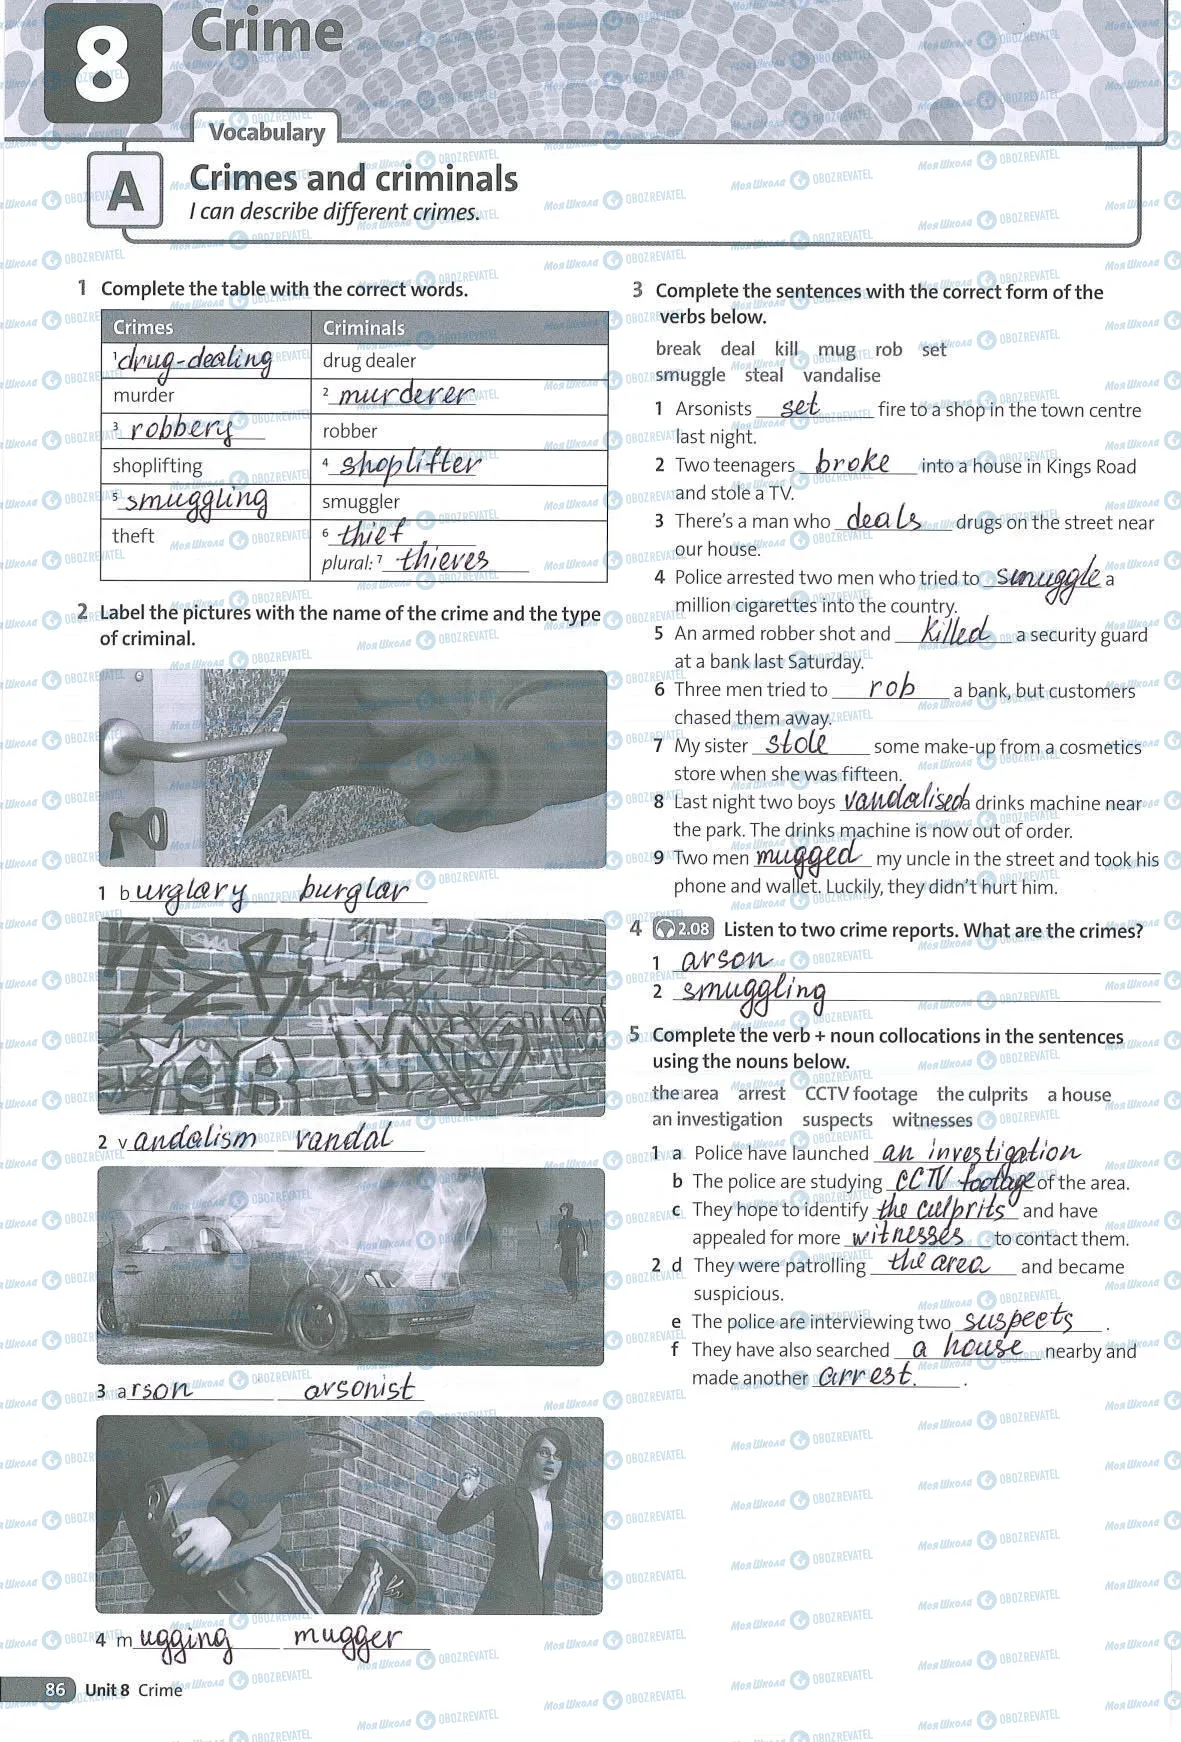 8
Crime
Vocabulary
A
Crimes and criminals
I can describe different crimes.
1 Complete the table with the correct words.
Crimes Criminals
1 drug-dealing drug dealer
murder 2 murderer
3 robbery robber
shoplifting 4 shoplifter
5 smuggling smuggler
theft 6 thief
plural: 7 thieves
2 Label the pictures with the name of the crime and the type
of criminal.
1 burglary burglar
2 vandalism vandal
3 arson arsonist
4 mugging mugger
3 Complete the sentences with the correct form of the
verbs below.
break deal kill mug rob set
smuggle steal vandalise
1 Arsonists set fire to a shop in the town centre
last night.
2 Two teenagers broke into a house in Kings Road
and stole a TV.
3 There's a man who deals drugs on the street near
our house.
4 Police arrested two men who tried to smuggle a
million cigarettes into the country.
5 An armed robber shot and killed a security guard
at a bank last Saturday.
6 Three men tried to rob a bank, but customers
chased them away.
7 My sister stole some make-up from a cosmetics
store when she was fifteen.
8 Last night two boys vandalised a drinks machine near
the park. The drinks machine is now out of order.
9 Two men mugged my uncle in the street and took his
phone and wallet. Luckily, they didn't hurt him.
4 2.08 Listen to two crime reports. What are the crimes?
1 arson
2 smuggling
5 Complete the verb + noun collocations in the sentences
using the nouns below.
the area arrest CCTV footage the culprits a house
an investigation suspects witnesses
1 a Police have launched an investigation
b The police are studying CCTV footage of the area.
c They hope to identify the culprits and have
appealed for more witnesses to contact them.
2 d They were patrolling the area and became
suspicious.
e The police are interviewing two suspects .
f They have also searched a house nearby and
made another arrest. .
86 Unit 8 Crime
МояШкола OBOZREVATEL